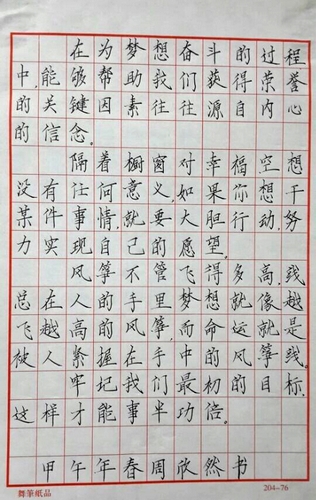 在为梦想奋斗的过程
中,能够帮助我们获得荣誉
的关键因素往往源自内心
的信念。
隔着橱窗对幸福空想
没有任何意义,如果你想干
某件事情,就要大胆行动,努
力实现自己的愿望。
风筝不管飞得多高,线
总在人的手里梦想就像越
飞越高的风筝,而命运就是
被人紧握在手中的风筝线。
牢记我们最初的目标.
这样才能事半功倍。
甲午年春周欣然书
舞笔纸品
204-76